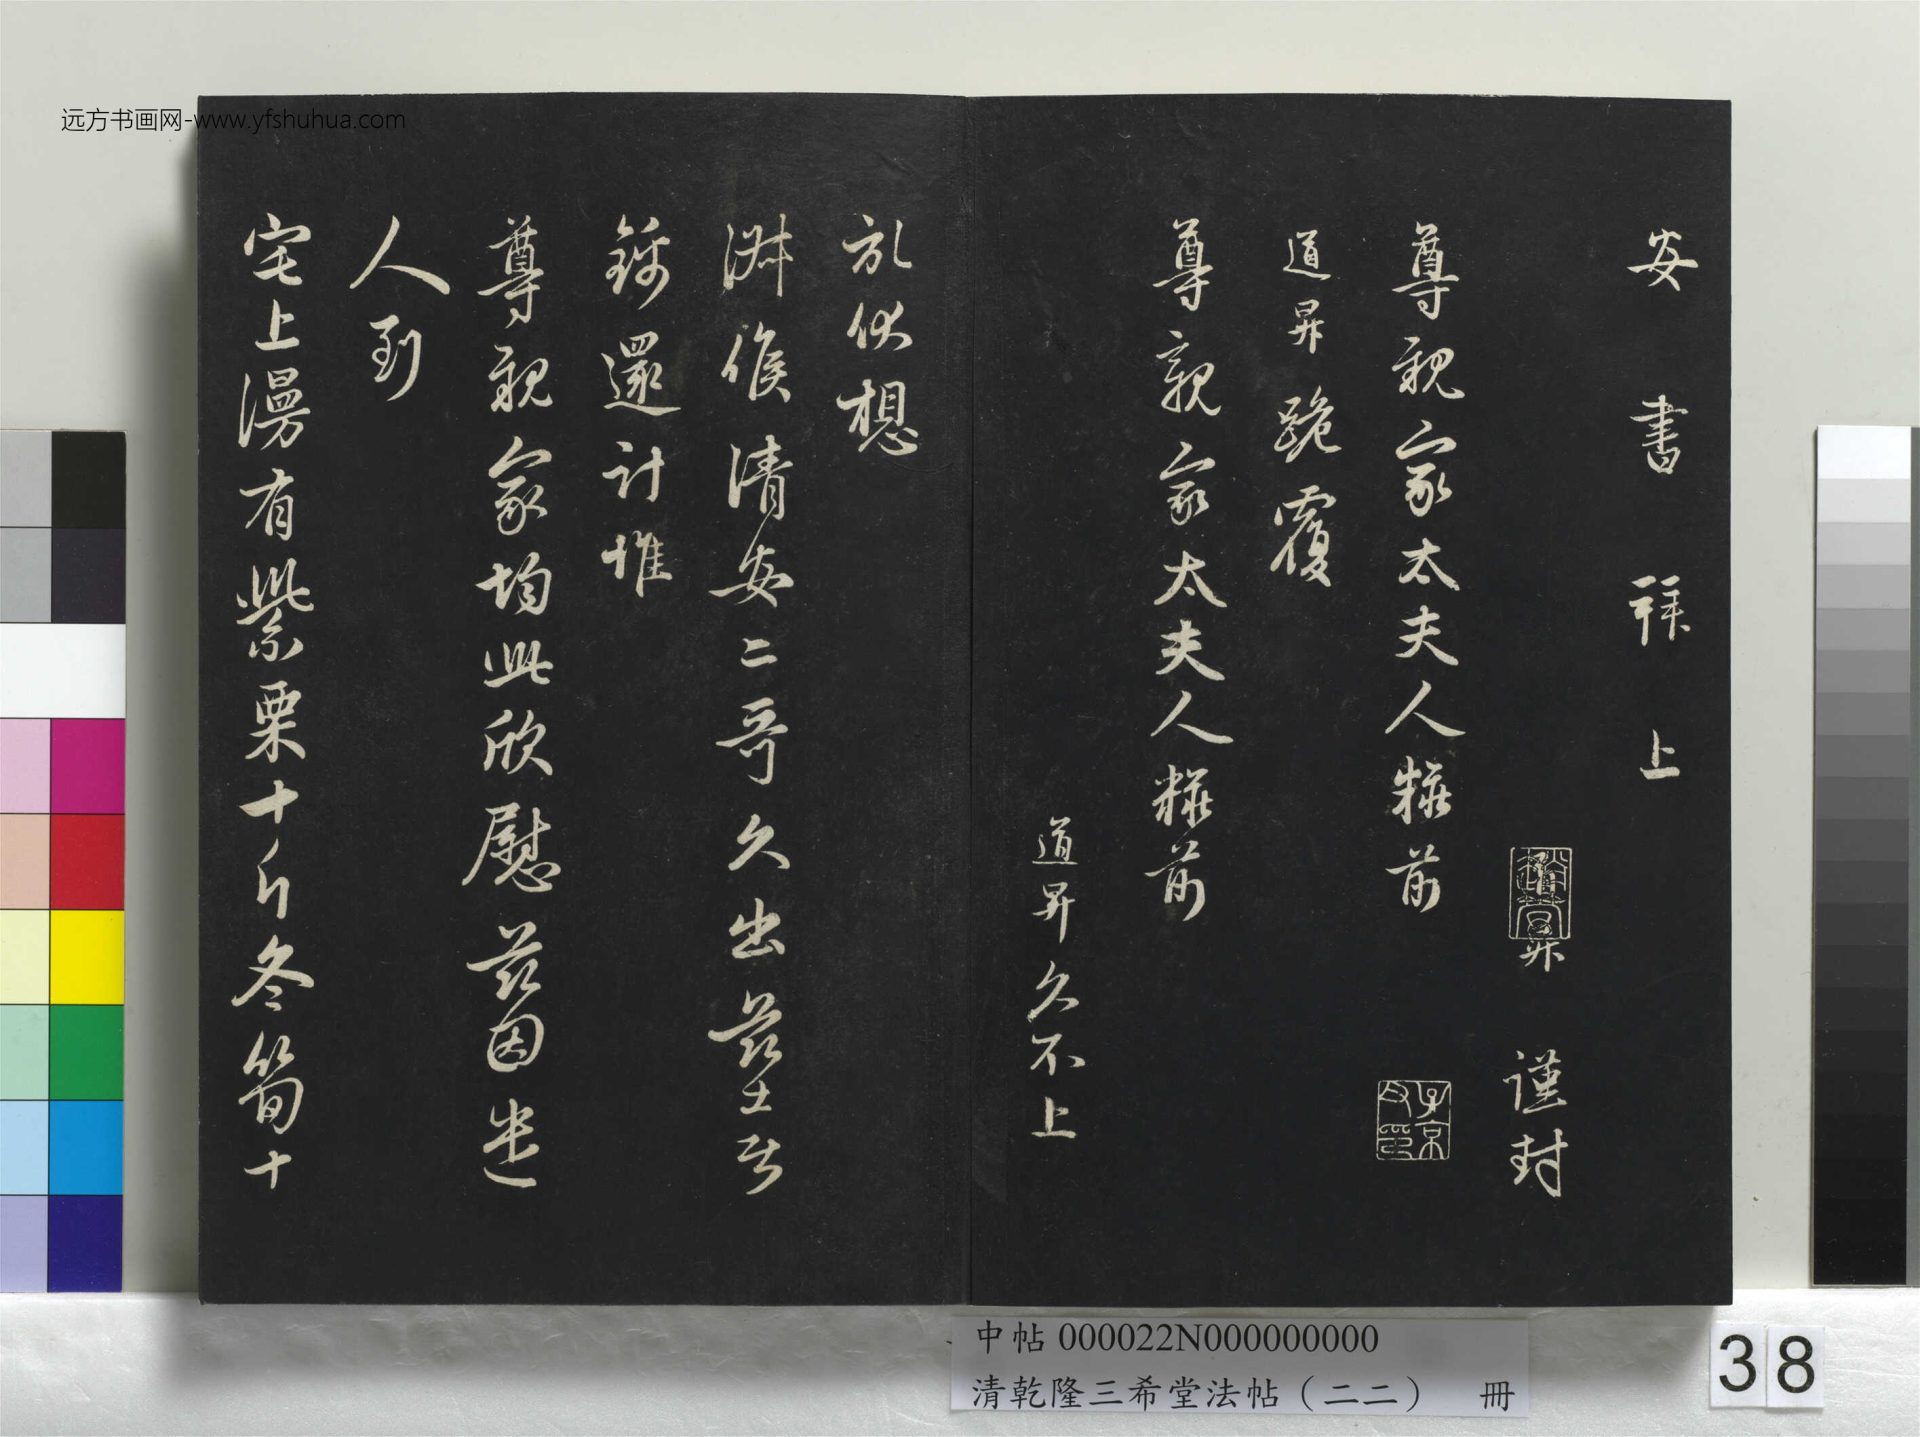 安書拜上
昇　謹封
尊親家太夫人粧前
子京父印
道昇跪覆
尊親家太夫人粧前
道昇久不上
伏想
淑候清安二哥久出茲
錦還計惟
尊親家均此欣慰茲因遣
人到
宅上漫有紫栗十斤冬筍十
中帖 000022N000000000
清乾隆三希堂法帖（二二）　冊
38
远方书画网-www.yfshuhua.com